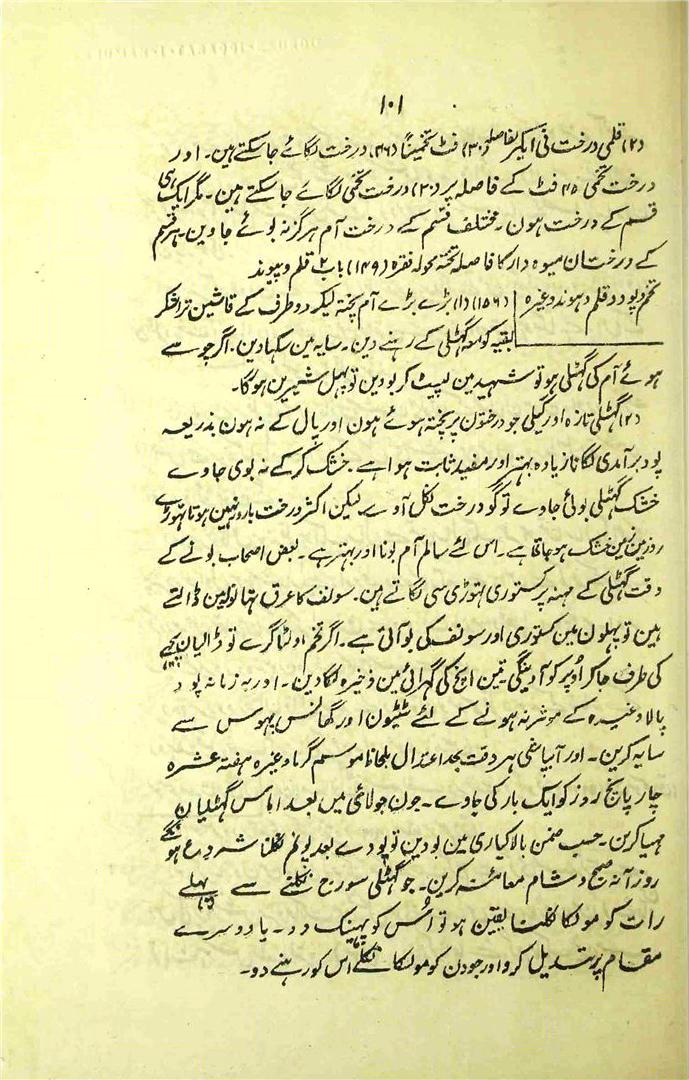 ۱۰۱
(۲) قلمی درخت فی ایکڑ بفاصلہ (۳۰) فٹ تخمیناً (۴۶) درخت لگائے جاسکتے ہین۔ اور
درخت تخمی ۴۵ فٹ کے فاصلہ پر (۲۰) درخت تخمی لگائے جا سکتے ہین۔ مگر ایک ہی
قسم کے درخت ہون۔ مختلف قسم کے درخت آم ہرگز نہ بوئے جاوین۔ ہر قسم
کے درختان میوہ دار کا فاصلہ تختہ محولہ فقرہ (۱۴۹) باب ۲ قلم و پیوند
تخم و پود و قلم و پیوند وغیرہ (۱۵۶) (۱) بڑے بڑے آم پختہ لیکر دو طرف کے قاشین تراشکر
بقیہ کو معہ گہٹلی کے رہنے دین۔ سایہ مین سکہادین۔ اگر چوسے
ہوئے آم کی گہٹلی ہو تو شہد مین لپیٹ کر بودین تو پہل شیرین ہوگا۔
(۲) گہٹلی تازہ اور گیلی جو درختون پر پختہ ہوئے ہون اور پال کے نہ ہون بذریعہ
پود برآمدی لگانا زیادہ بہتر اور مفید ثابت ہوا ہے۔ خشک کرکے نہ بوی جاوے
خشک گہٹلی بوئی جاوے تو گو درخت نکل آوے لیکن اکثر درخت بارور نہین ہوتا تہوڑے
روز مین زمین خشک ہوجاتا ہے۔ اس لئے سالم آم بونا اور بہتر ہے۔ بعض اصحاب بونے کے
وقت گہٹلی کے مہنہ پر کستوری تہوڑی سی لگاتے ہین۔ سونف کا عرق تہانولہ مین ڈالتے
ہین تو پہلون مین کستوری اور سونف کی بو آتی ہے۔ اگر تخم اولٹا گرے تو ڈالیان نیچے
کی طرف جاکر اوپر کو آوینگی۔ تین انچ کی گہرائی مین ذخیرہ لگادین۔ اور بہ زمانہ پود
پالا وغیرہ کے موثر نہ ہونے کے لئے ٹٹیون اور گھانس پہوس سے
سایہ کرین۔ اور آبپاشی ہر وقت بحد اعتدال بلحاظ موسم گرما وغیرہ ہفتہ عشرہ
چار پانچ روز کو ایک بار کی جاوے۔ جون جولائی میں بعد اماس گہٹلیان
مہیا کرین۔ حسب ضمن بالا کیاری مین بودین تو پودے بعد یوم نکلنا شروع ہونگے
روزآنہ صبح و شام معائنہ کرین۔ جو گہٹلی سورج نکلنے سے پہلے
رات کو مولکا نکلنا یقین ہو تو اُس کو پہینک دو۔ یا دوسرے
مقام پر تبدیل کرو اور جو دن کو مولکا نکلے اس کو رہنے دو۔